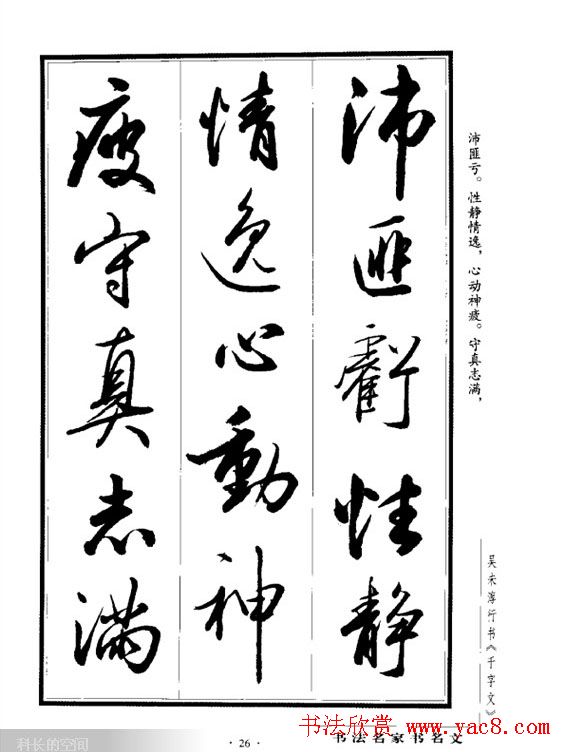 沛匪虧性靜
情逸心動神
疲守真志满
沛匪亏。性静情逸，心动神疲。守真志满，
吴未淳行书《千字文》
书法名家书名文
· 26 ·
书法欣赏 www.yac8.com
科长的空间